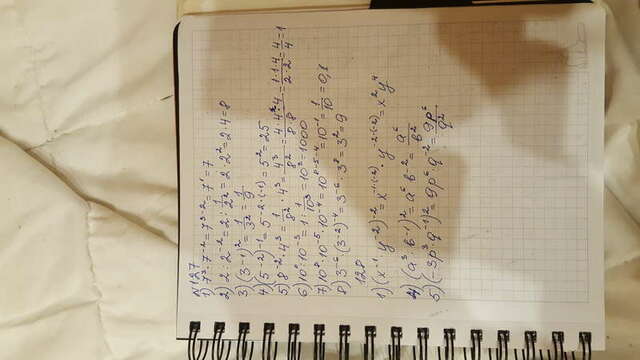 №127
1) 7³·7⁻²=7³⁻²=7¹=7
2) 2:2⁻²=2:1/2²=2·2²=2·4=8
3) (3⁻¹)²=1/3²=1/9
4) (5⁻²)⁻¹=5⁻²·⁽⁻¹⁾=5²=25
5) 8⁻²·4³=1/8²·4³=4³/8²=4·4·4/8·8=1·1·4/2·2=4/4=1
6) 10⁰:10⁻³=1:1/10³=10³=1000
7) 10⁸·10⁻⁵·10⁻⁴=10⁸⁻⁵⁻⁴=10⁻¹=1/10=0,1
8) 3⁻⁶·(3⁻²)⁻⁴=3⁻⁶·3⁸=3²=9
128
1) (x⁻¹·y⁻²)⁻²=x⁻¹·⁽⁻²⁾·y⁻²·⁽⁻²⁾=x²y⁴
4) (a³·b⁻¹)²=a⁶b⁻²=a⁶/b²
5) (-3p³·q⁻¹)²=9p⁶·q⁻²=9p⁶/q²